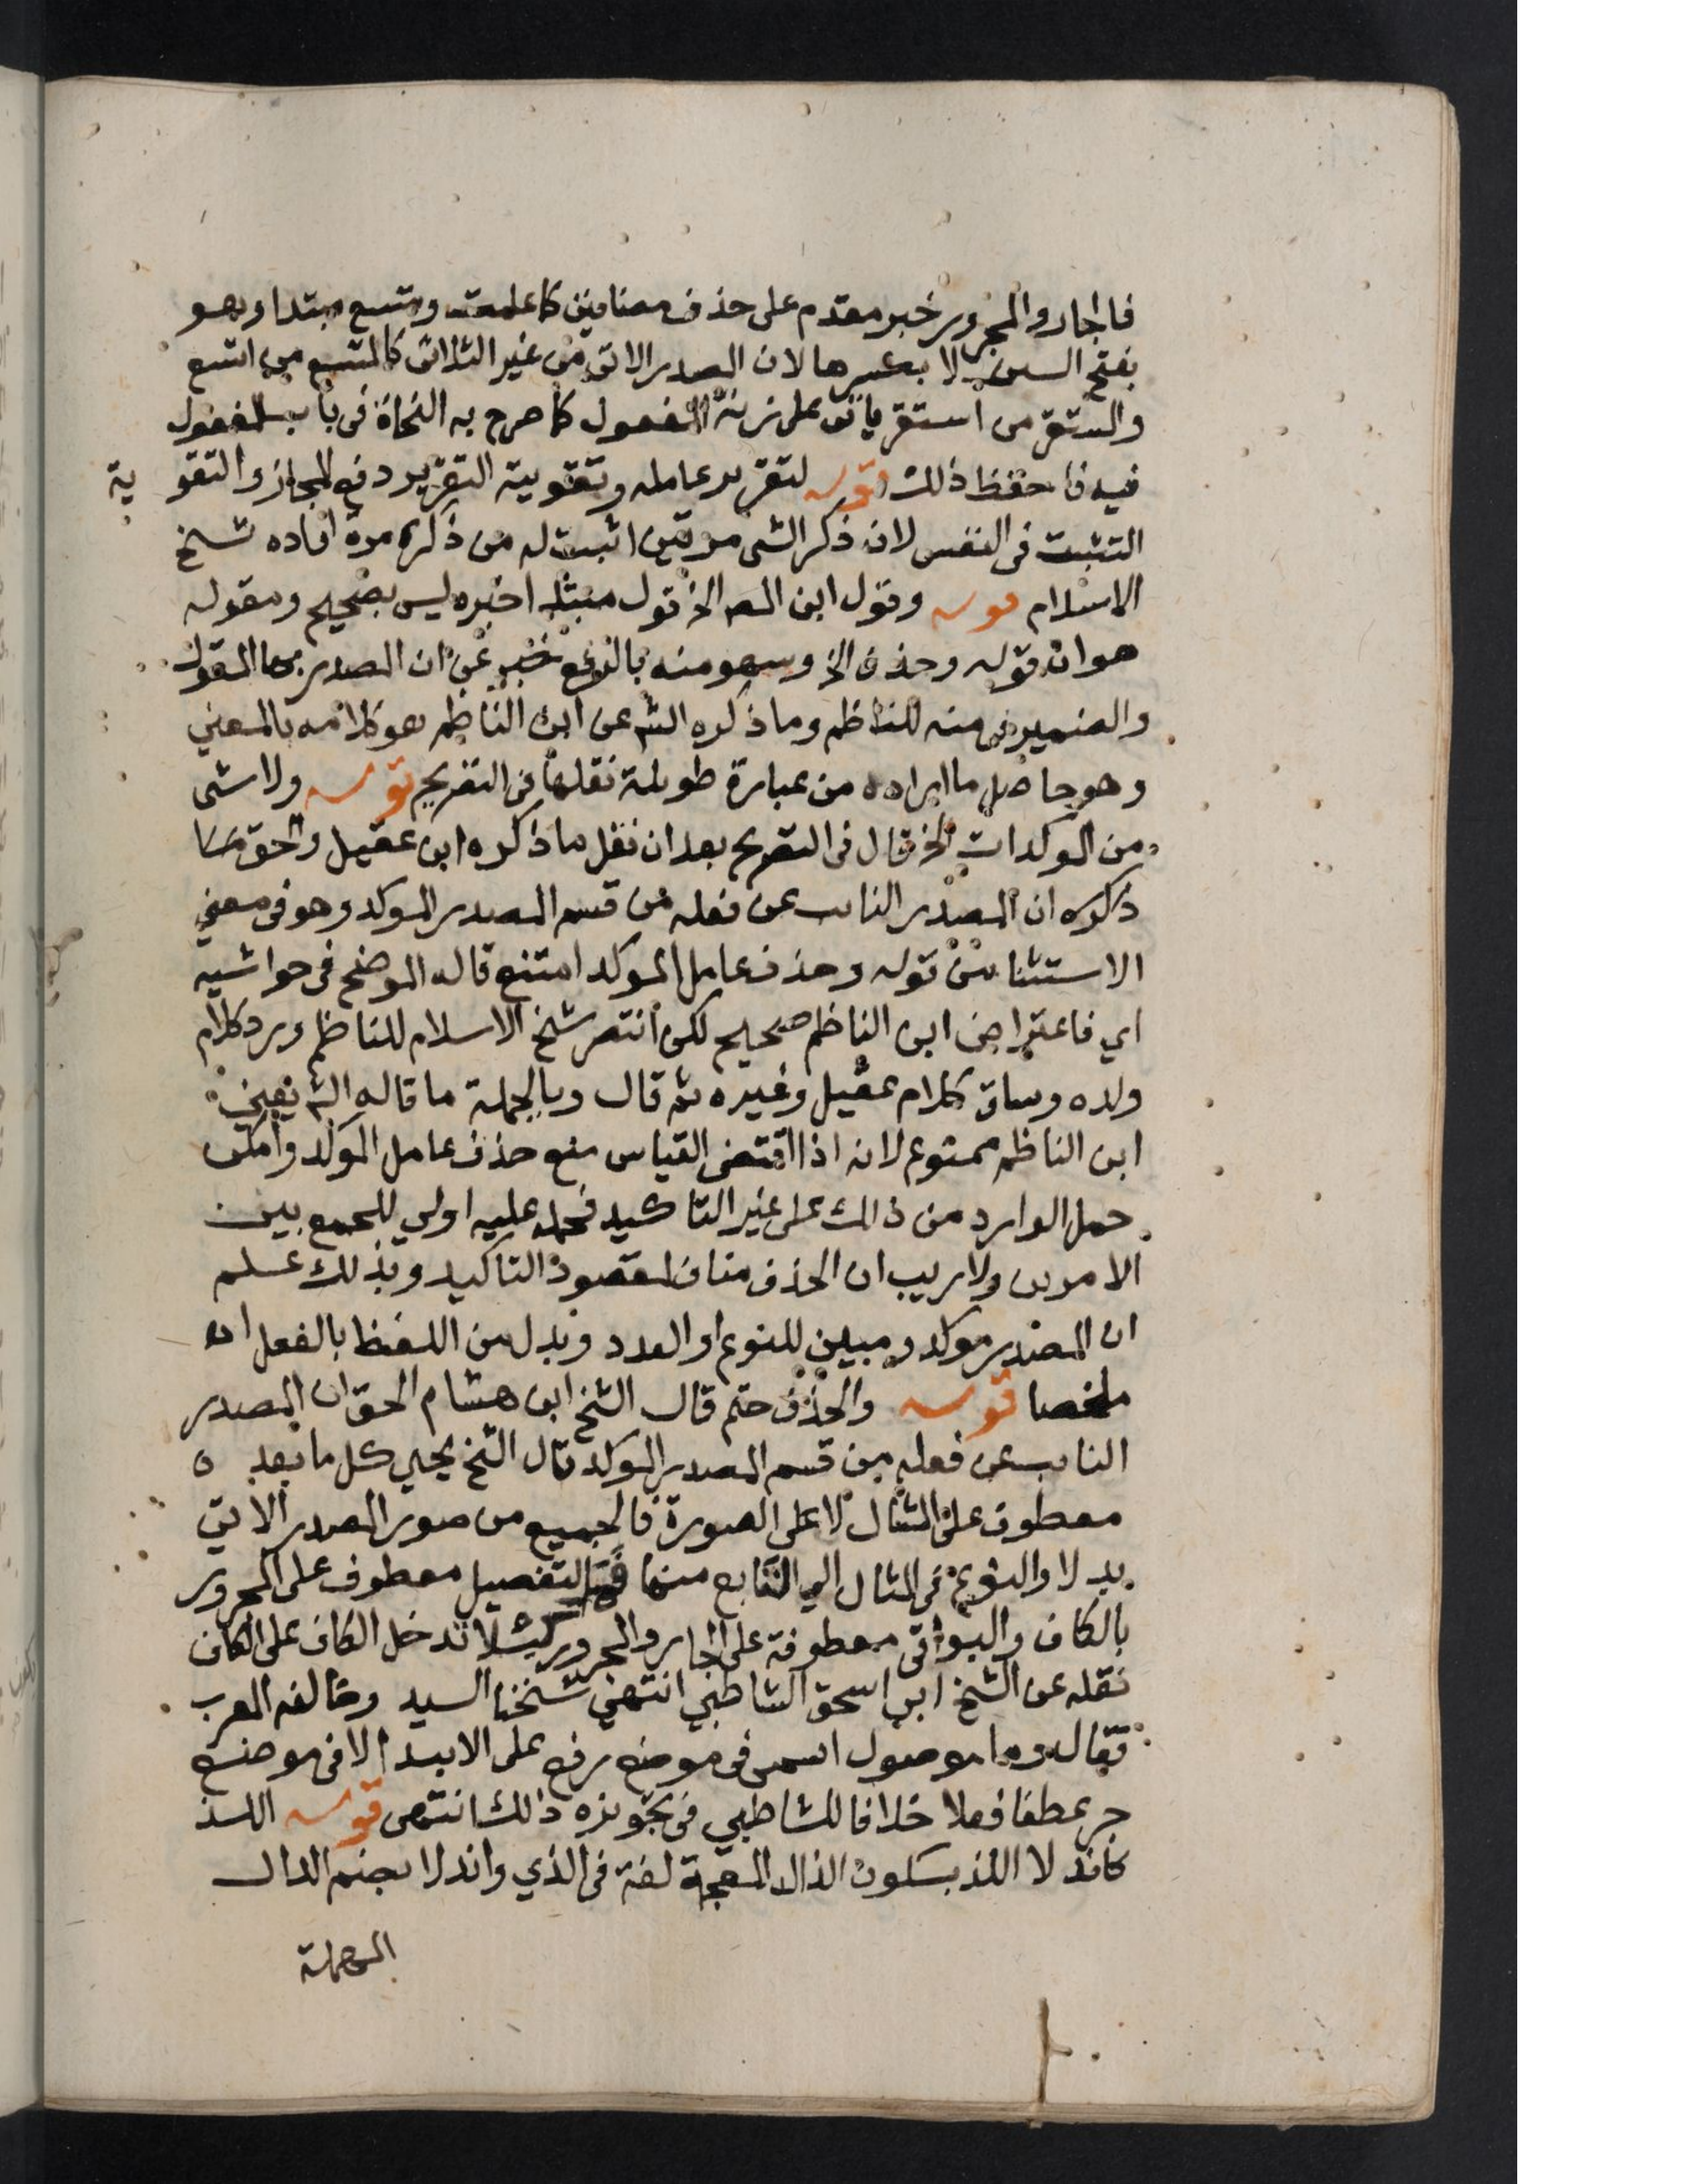 فالجار والمجرور خبر مقدم على حذف مضافين كما علمت ومتسع مبتدا وهو
بفتح السين لا بكسرها لان المصدر الاتى من غير الثلاثى كالمتسع من اتسع
والمستقر من استقر ياتى على زنة المفعول كما صرح به النحاة فى باب المفعول
فيه فاحفظ ذلك قوله لتقرير عامله وتقوية التقرير دفع المجاز والتقوية
التثبت فى النفس لان ذكر الشى مرتين اثبت له من ذكره مرة افاده شيخ
الاسلام قوله وقول ابن المص الخ قول مبتدا خبره ليس بصحيح ومقوله
هو ان قوله وحذف الخ وسهو منه بالرفع خبر عن ان المصدر بها المقول
والضمير فى منه للناظم وما ذكره الش عن ابن الناظم هو كلامه بالمعني
وهو حاصل ما اراده من عبارة طويلة نقلها فى التصريح قوله ولا شى
من الموكدات الخ قال فى التصريح بعد ان نقل ما ذكره ابن عقيل والحق ما
ذكره ان المصدر النايب عن فعله من قسم المصدر الموكد وهو فى معني
الاستثنا من قوله وحذف عامل الموكد امتنع قاله الموضح فى حواشيه
اي فاعتراض ابن الناظم صحيح لكن انتصر شيخ الاسلام للناظم ورد كلام
ولده وساق كلام عقيل وغيره ثم قال وبالجملة ما قاله الش يعني
ابن الناظم ممنوع لانه اذا اقتضى القياس منع حذف عامل الموكد وامكن
حمل الوارد من ذلك على غير التاكيد فحمله عليه اولي للجمع بين
الامرين ولا ريب ان الحذف مناف لمقصود التاكيد وبذلك علم
ان المصدر موكد ومبين للنوع او العدد وبدل من اللفظ بالفعل اه
ملخصا قوله والحذف حتم قال الشخ ابن هشام الحق ان المصدر
النايب عن فعله من قسم المصدر الموكد قال الشخ يحيي كل ما بعده
معطوف على المثال لا على الصورة فالجميع من صور المصدر الاتي
بدلا والنوع فى المثال الي التابع منها التفصيل معطوف على المجرور
بالكاف والبواقى معطوفة على الجار والمجرور ليلا تدخل الكاف على الكاف
نقله عن الشخ ابي اسحق الشاطبي انتهي شيخنا السيد وخالفه المعرب
فقال وما موصول اسمى فى موضع رفع على الابتدا لا فى موضع
جر عطفا فعلا خلافا للشاطبي فى تجويزه ذلك انتهى قوله اللذ
كاندلا اللذ بسكون الذال المعجمة لغة فى الذي واندلا بضم الدال
المهملة